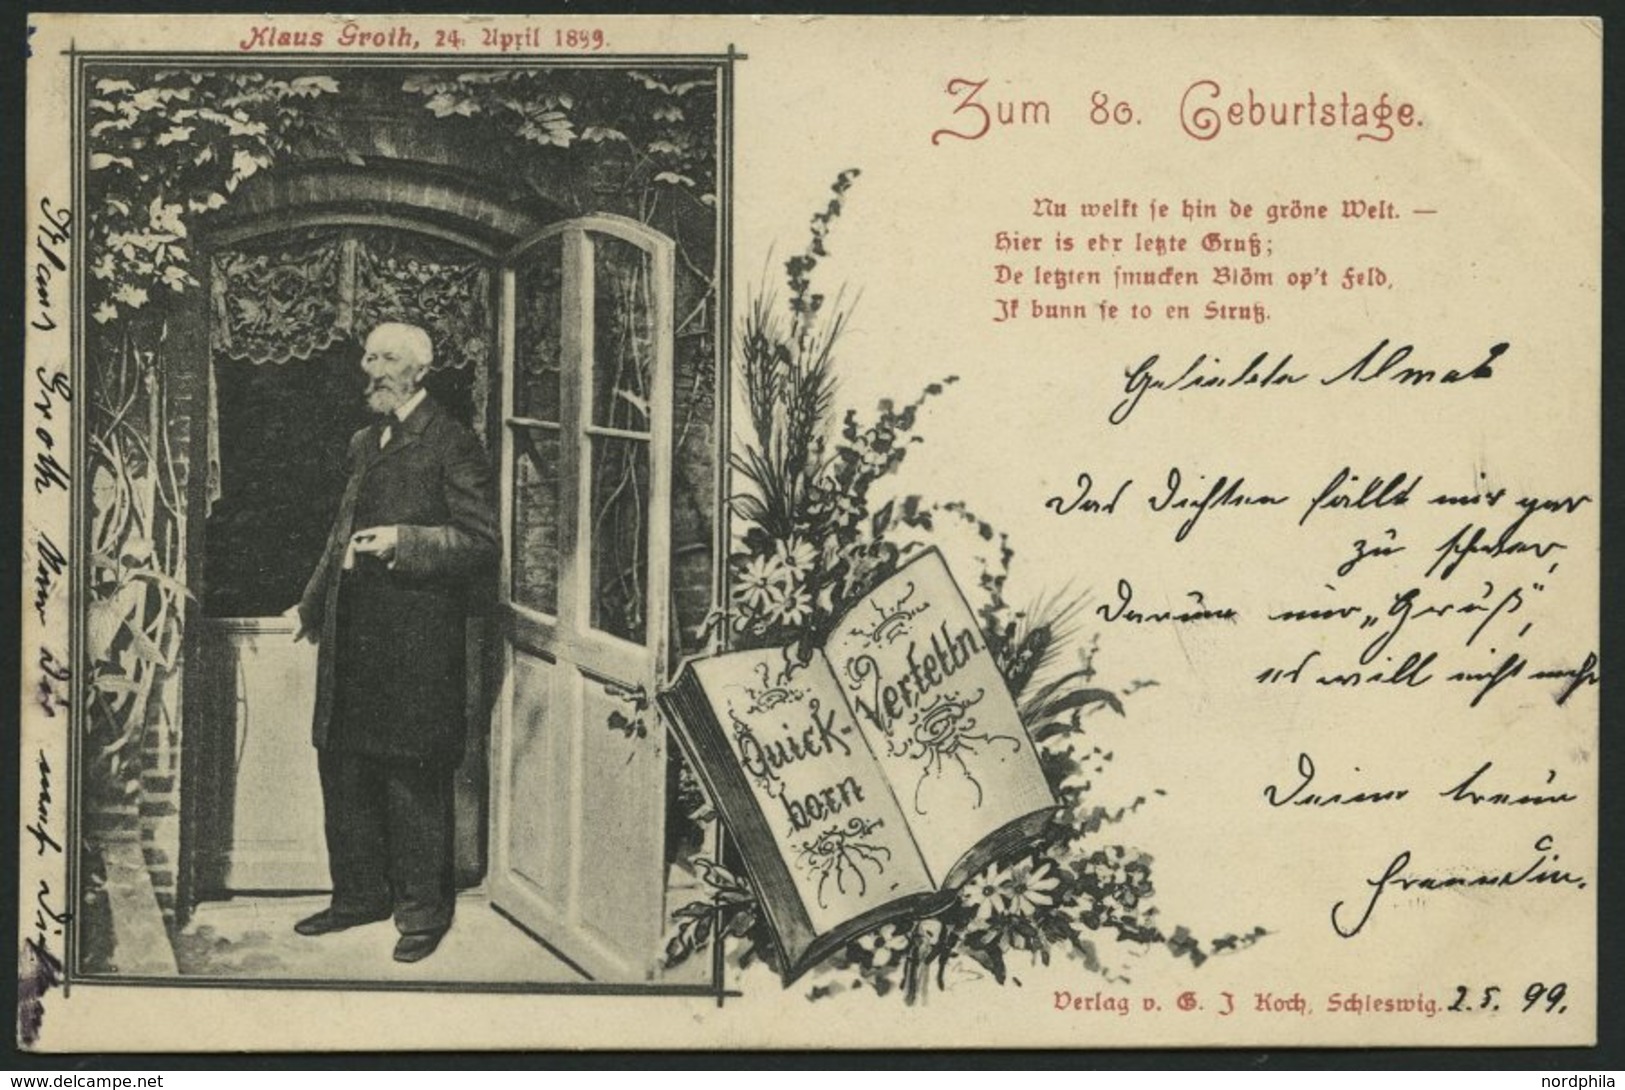 Klaus Groth, 24. April 1899.
Zum 80. Geburtstage.
Nu welkt se hin de gröne Welt. —
Hier is ehr letzte Gruß;
De letzten smucken Blöm op't Feld,
Ik bunn se to en Struß.
Geliebte Alma!
Das Dichten fällt mir gar
zu schwer,
Darum nur „Gruß",
es will nicht mehr
Deine treue
Freundin.
Quick-
born
Vertelln.
Verlag v. G. J Koch, Schleswig.
2. 5. 99.
Klaus Groth
nordphila